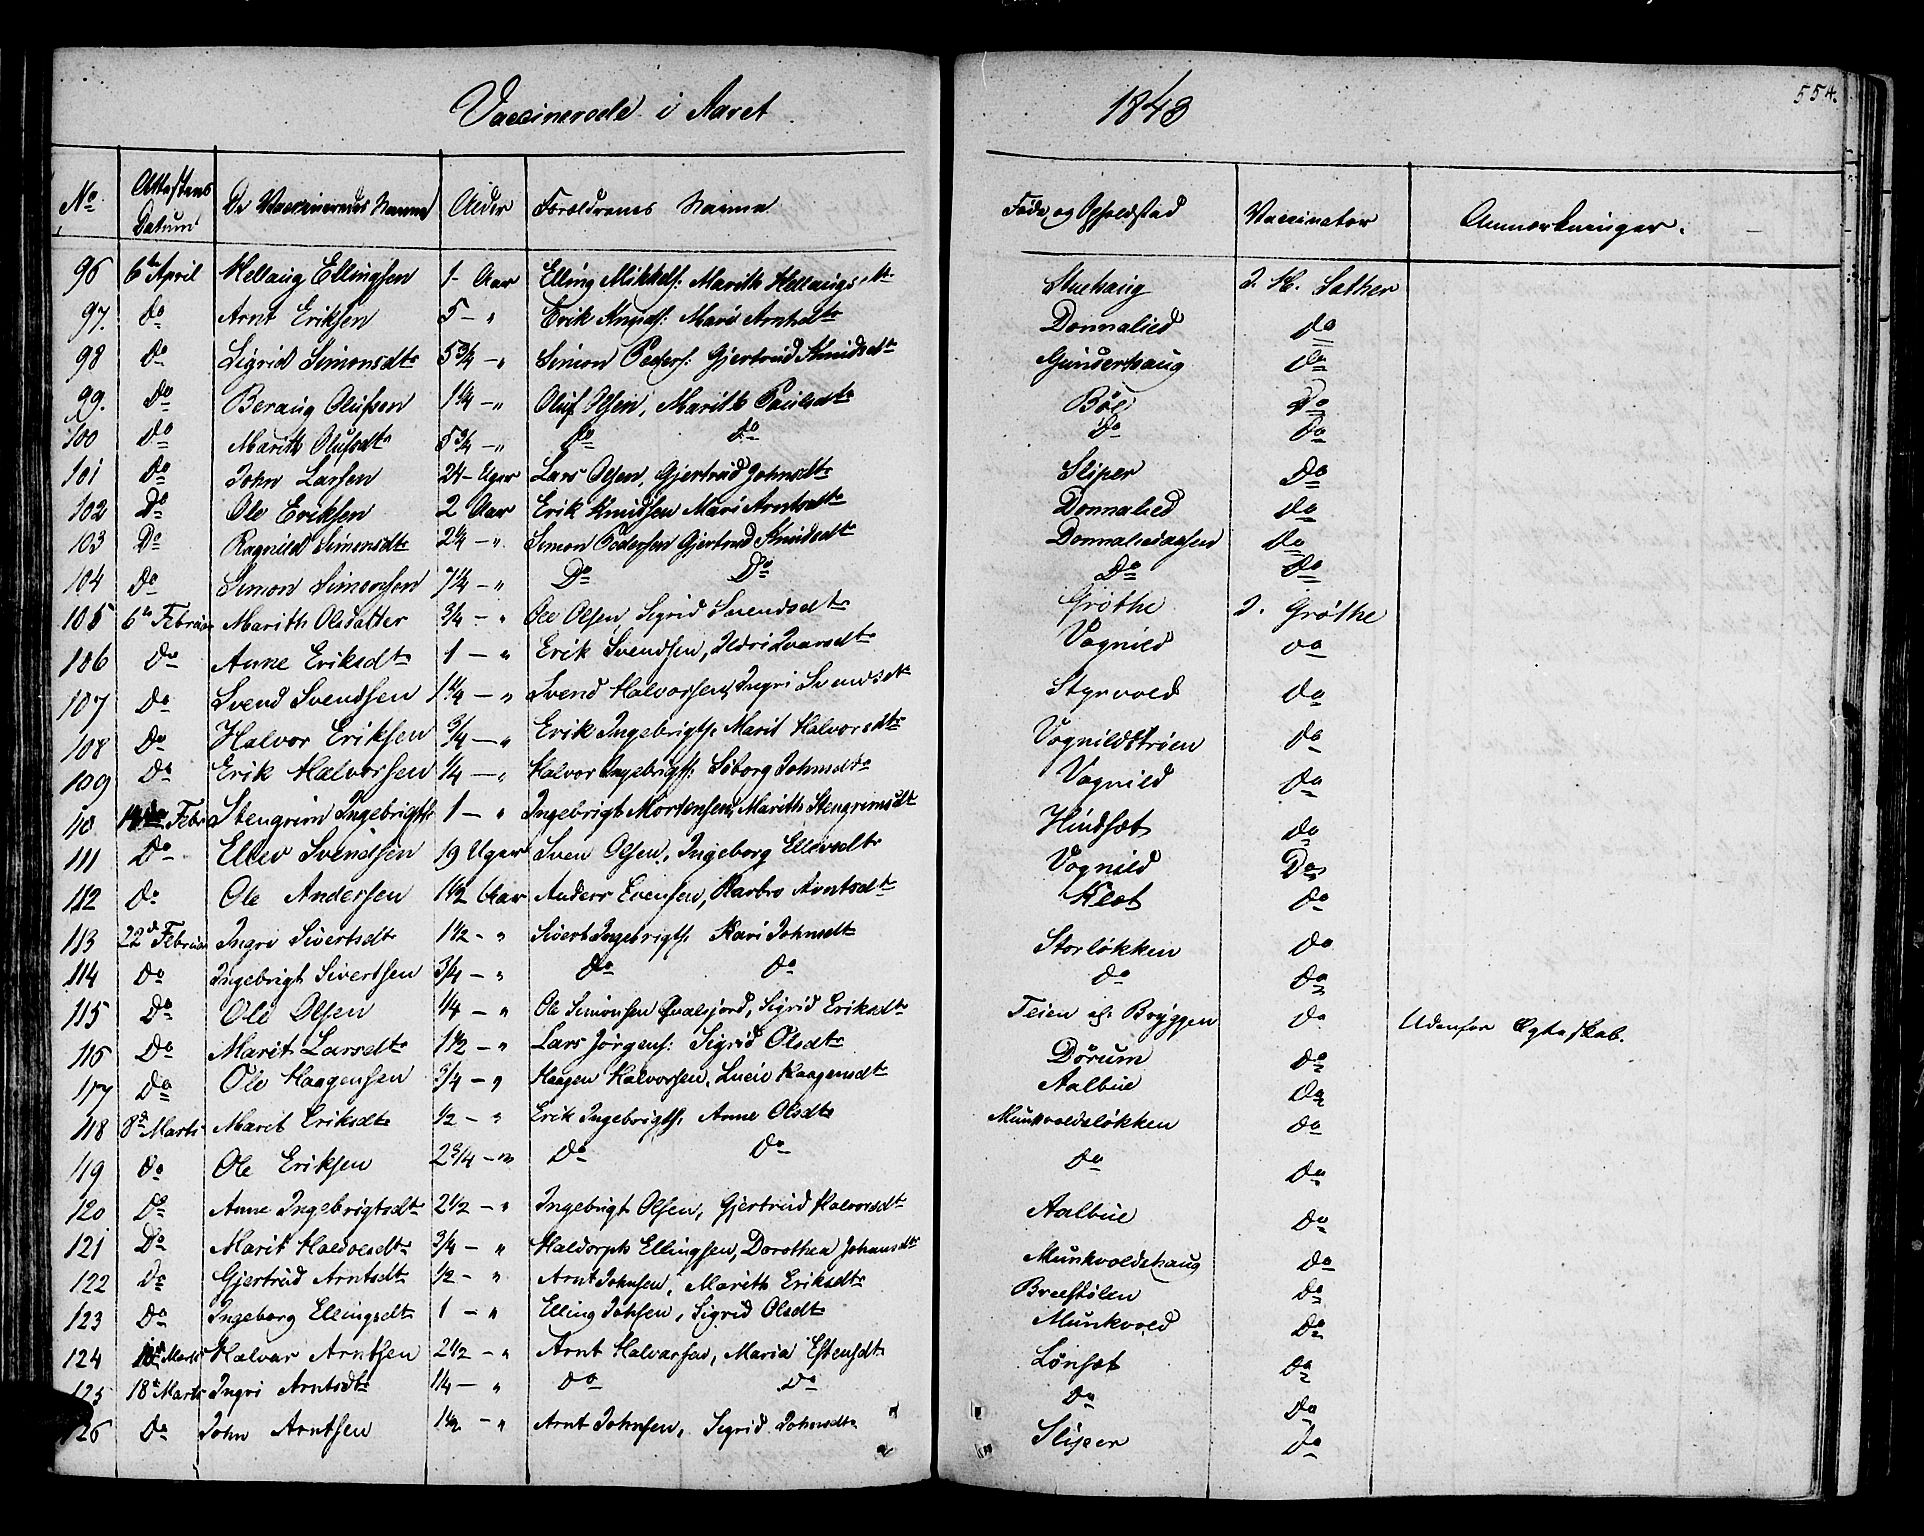 Vaccinerede i Aaret 1843
554.
No. Attestens Datum De Vaccineredes Navne Alder Forældrenes Navne Føde og Opholdsted Vaccinator Anmærkninger.
96 6te April Hellaug Ellingsen 1 - Aar Elling Mikkels: Marith Hellaugsdtr Stuehaug J. H. Sæther
97. do Arnt Eriksen 5 - " Erik Knuds: Mari Arntsdtr Donnalied do
98 do Sigrid Simonsdtr 5 3/4 - " Simon Peders: Gjertrud Knudsdtr Gunderhaug do
99. Do Beraug Olufsen 1 1/4 - " Oluf Olsen, Marith Paulsdtr Böe Do
100 do Marith Olufsdtr 5 3/4 - " do do do do
101 do John Larsen 24 - Uger Lars Olsen, Gjertrud Johnsdtr Sliper Do
102 Do Ole Eriksen 2 Aar Erik Knudsen Mari Arntsdtr Donnalied do
103 Do Ragnild Simonsdtr 2 1/4 - " Simon Pedersen Gjertrud Knudsdtr Donnaliedaasen do
104 do Simon Simonsen 7 1/4 - " Do Do Do do
105 6te Februar Marith Olsdatter 3/4 - " Ole Olsen, Sigrid Svendsdtr Gröthe J. Gröthe
106 Do Anne Eriksdtr 1 - " Erik Svendsen, Ildri Ivarsdtr Vognild do
107 Do Svend Svendsen 1 1/4 - " Svend Halvorsen, Ingri Svendsdtr Styrvold do
108 Do Halvor Eriksen 3/4 - " Erik Ingebrigts. Marit Halvorsdtr Vognildströen do
109 Do Erik Halvorsen 1/4 - " Halvor Ingebrigts: Siborg Johnsdtr Vognild do
110 Febr Stengrim Ingebrigts 1 - " Ingebrigt Mortensen, Marith Stengrimsdtr Hindsæt do
111 Do Ellev Svendsen 19 Uger Sven Olsen, Ingeborg Ellevsdtr Vognild Do
112 Do Ole Andersen 1 1/2 Aar Anders Evensen, Barbro Arntsdtr Klet do
113 22de Februar Ingri Sivertsdtr 1 1/2 - " Sivert Ingebrigts. Kari Johnsdtr Storløkken do
114 do Ingebrigt Sivertsen 3/4 - " do do do do
115 Do Ole Olsen 1/4 - " Ole Simonsen Qualsjord, Sigrid Eriksdtr Teien of: Bryggen do Udenfor Ægteskab.
116 Do Marit Larsdtr 1 1/2 - " Lars Jörgens: Sigrid Olsdtr Dörum do
117 Do Ole Haagensen 3/4 - " Haagen Halvorsen, Lucie Haagensdtr Aalbue do
118 8de Marts Marit Eriksdtr 1/2 - " Erik Ingebrigts. Anne Olsdtr Munkvoldsløkken do
119 do Ole Eriksen 2 3/4 - " Do do do do
120 Do Anne Ingebrigtsdtr 2 1/2 - " Ingebrigt Olsen, Gjertrud Halvorsdtr Aalbue do
121 Do Marit Haldorsdtr 3/4 - " Haldorph Ellingsen, Dorothea Johansdtr Munkvoldshaug do
122 Do Gjertrud Arntsdtr 1/2 - " Arnt Johnsen, Marith Eriksdtr Breestölen do
123 Do Ingeborg Ellingsdtr 1 - " Elling Johsen, Sigrid Olsdtr Munkvold do
124 Marts Halvar Arntsen 2 1/2 - " Arnt Halvarsen, Maria Estensdtr Lönset do
125 18de Marts Ingri Arntsdtr 1/4 - " do do do do
126 Do John Arntsen 1 1/2 - " Arnt Johnsen, Sigrid Johnsdtr Sliper do